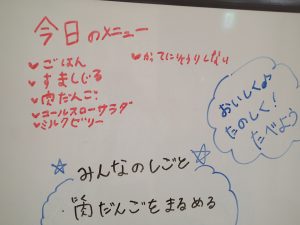 今日のメニュー
♥ごはん
♥すましじる
♥肉だんご
♥コールスローサラダ
♥ミルクゼリー
♥かってにりょうりしない
おいしくよ
たのしく!
たべよう
☆みんなのしごと☆
・肉だんごをまるめる